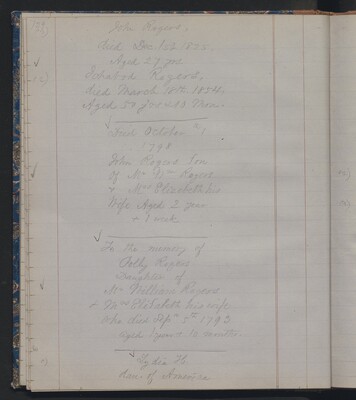 John Rogers,
died Dec 1st
Aged 27 yrs
Rogers,
died March 18th 1854,
Aged 50 yrs
died October
1798
John Rogers Son
of Mr Wm Rogers
+ Mrs Elizabeth his
Wife Aged 2 year
+ 1 week
To the memory of
Polly Rogers
Daughter of
Mr William Rogers
+ Mrs Elizabeth his wife
who died Sept 5th 1793
aged 1 year + months.
Lydia H.
dau. of